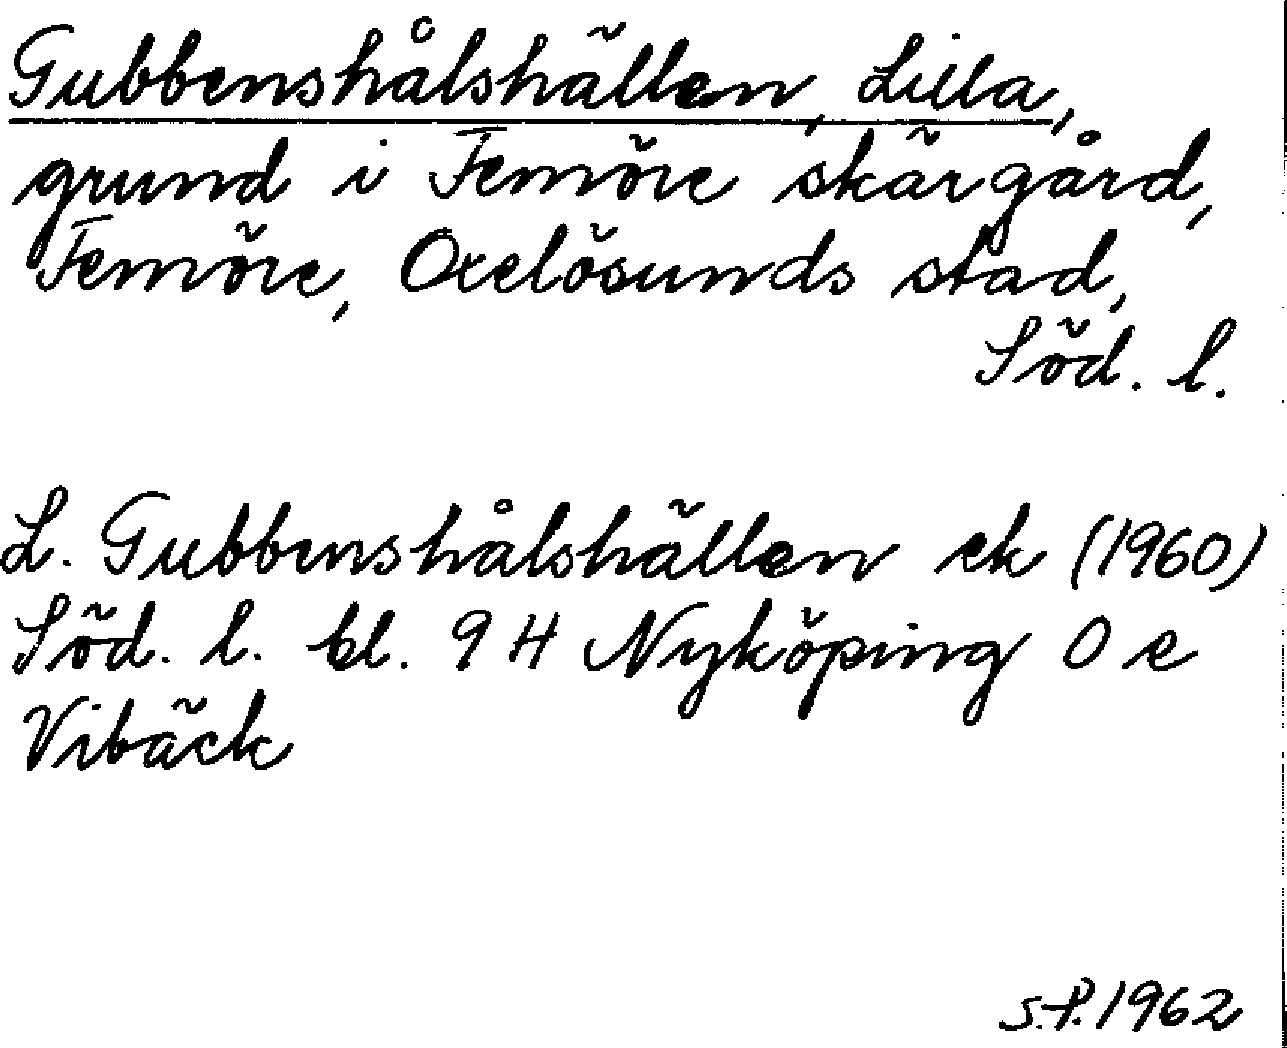 Gubbenshålshällen, Lilla,
grund i Femöre skärgård,
Femöre, Oxelösunds stad,
Söd. l.
L. Gubbenshålshällen ek (1960)
Söd. l. bl. 9 H Nyköping O e
Vibäck
S.P. 1962